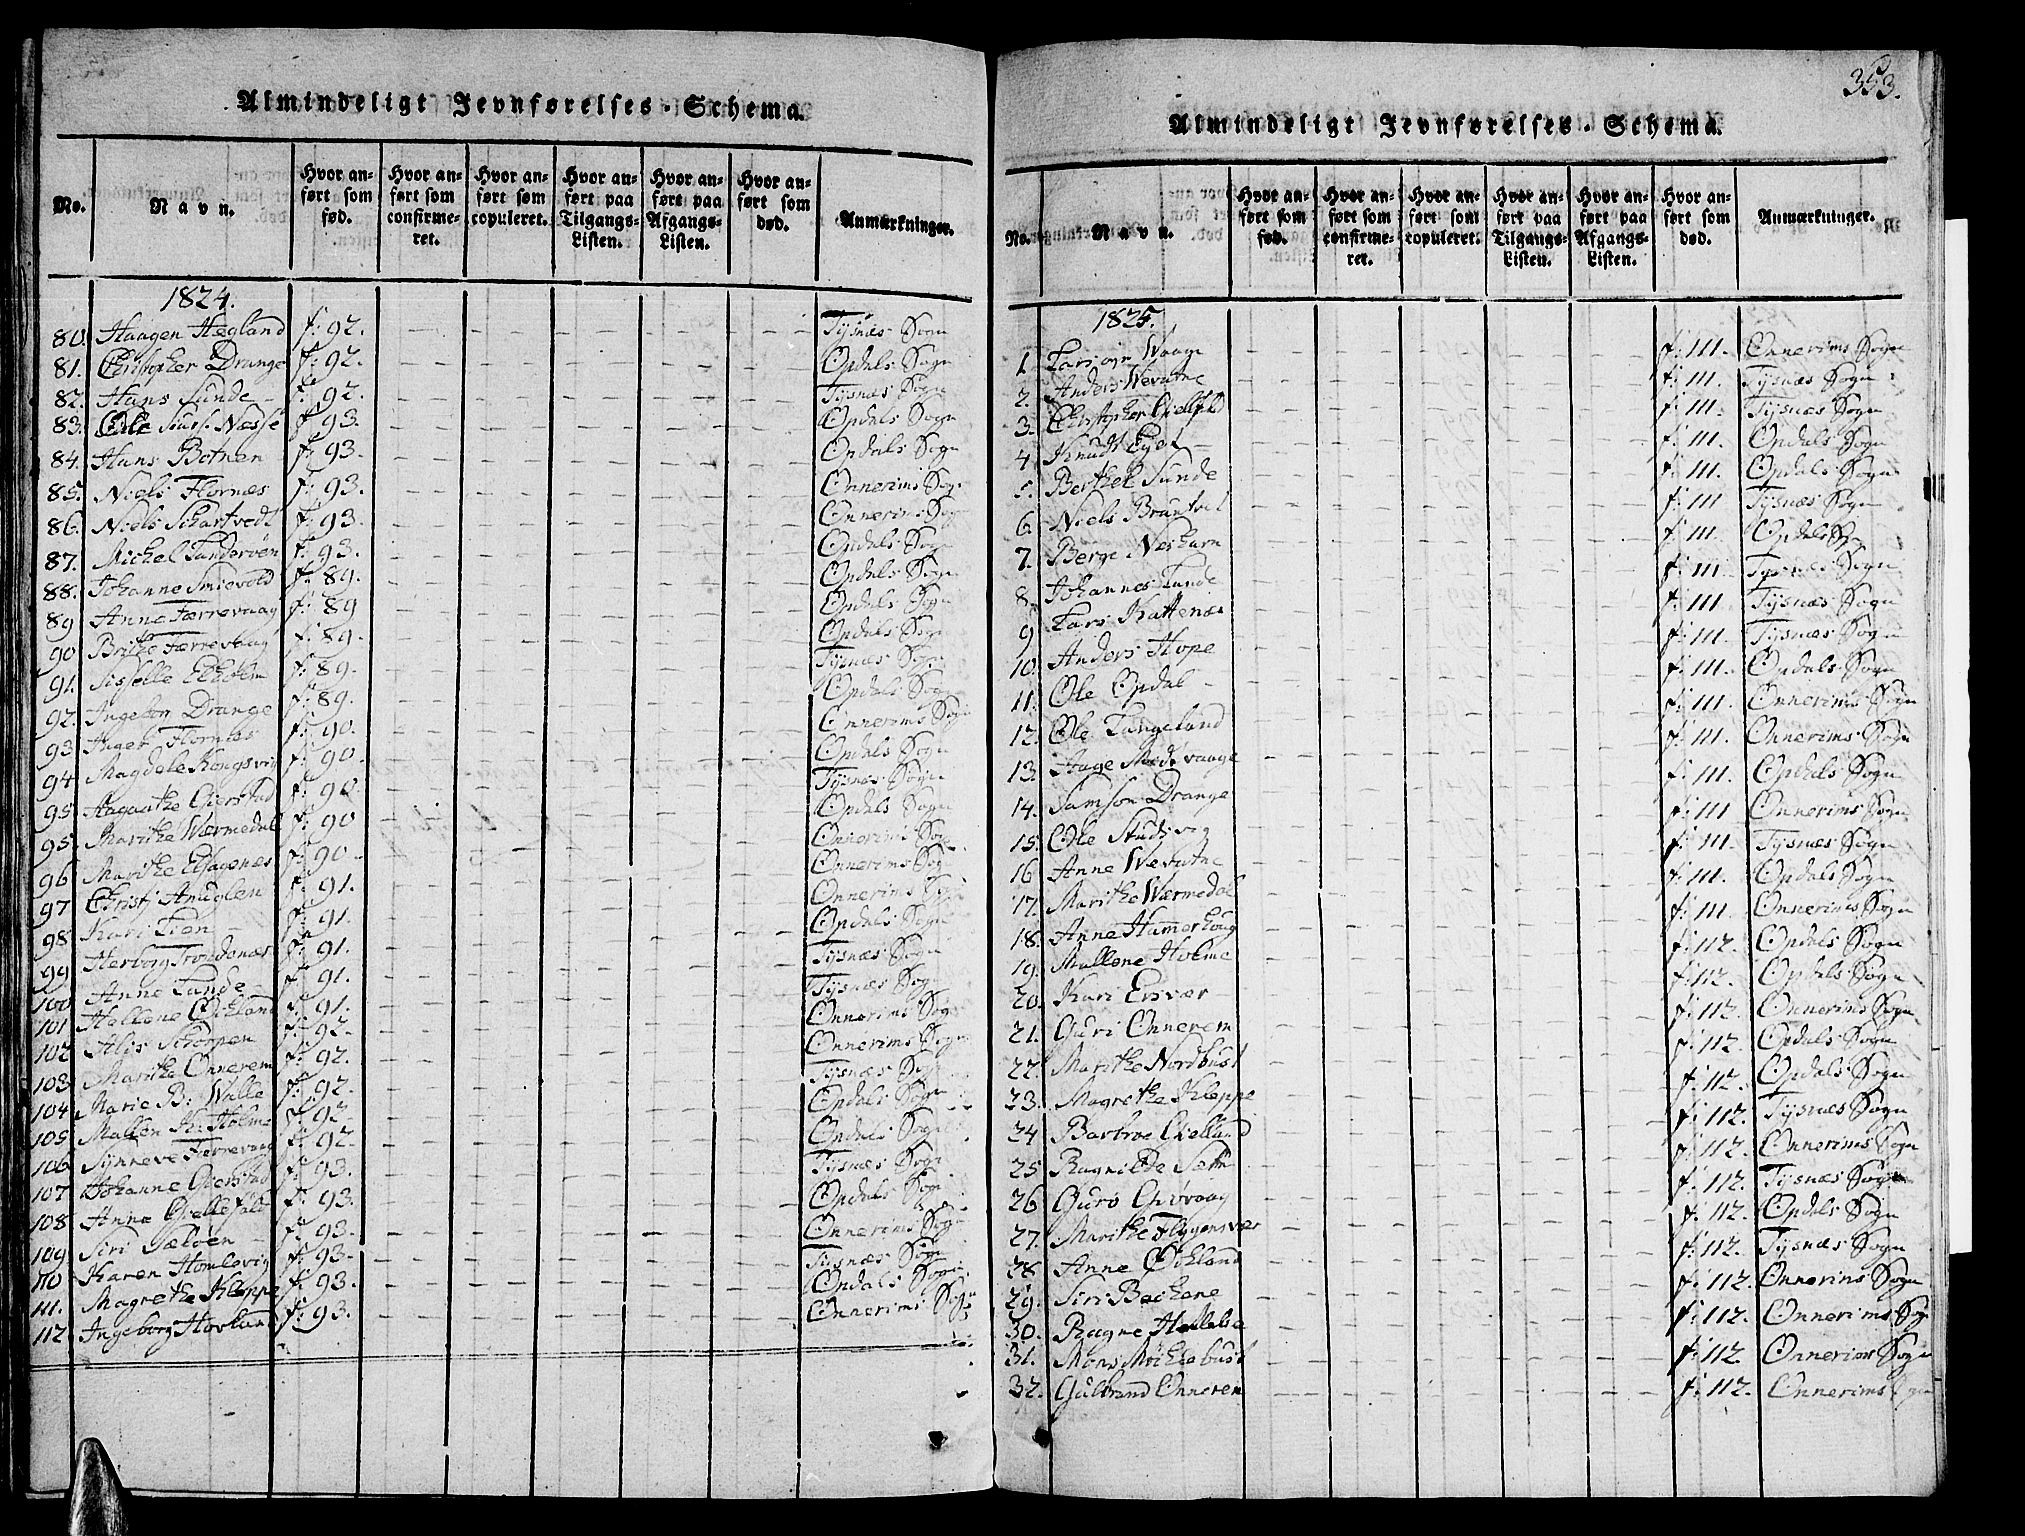 Almindeligt Jevnførelses-Schema.
No. Navn. Hvor anført som fød. Hvor anført som confirmeret. Hvor anført som copuleret. Hvor anført paa Tilgangs-Listen. Hvor anført paa Afgangs-Listen. Hvor anført som død. Anmærkninger.
1824.
80. Haagen Hegland f: 92. Tysnæs Sogn
81. Christopher Drange f: 92. Opdals Sogn
82. Hans Sunde f: 92. Tysnæs Sogn
83. Ole Næsse f: 93. Opdals Sogn
84. Hans Botnen f: 93. Opdals Sogn
85. Niels Flornæs f: 93. Onnerims Sogn
86. Niels Schartvedt f: 93. Onnerims Sog
87. Michel Tanderøen f: 93. Opdals Sogn
88. Johanne Smievold f: 89. Opdals Sogn
89 Anne Færrevaag f: 89 Opdals Sogn
90 Brithe Færrevaag f: 89. Opdals Sogn
91. Sisselle f: 89. Tysnæs Sogn
92. Drange f: 89. Opdals Sogn
93 Flornæs f: 90. Onnerims Sogn
94 Magdele Kongsvig f: 90. Opdals Sogn
95. Aagaathe Gierstad f: 90. Tysnæs Sogn
95. Marithe Wærmedal f: 90 Opdals Sogn
96 Marithe f: 90. Onnerims Sog
97 Christj Anuglen f: 91. Onnerims Sog
98 Kari Lien f: 91. Onnerims Sogn
99 Herborg f: 91. Opdals Sogn
100 Anne f: 91. Tysnæs Sogn
101 Hellene Økland f: 91. Tysnæs Sogn
102 Alis Skorpen f: 92. Onnerims Sog
103 Marithe Onnerem f: 92. Onnerims Sogn
104 Marie B: Wille f: 92. Tysnæs Sog
105 Mallen H: Holme f: 92. Opdals Sogn
106 Synneve Færrevaag f: 92. Opdals Sogn
107 Johanne Gierstad f: 93. Tysnæs Sogn
108 Anna Gjellefald f: 93. Opdals Sogn
109 Siri Sæløen f: 93. Onnerims Sogn
110 Karen Homlevig f: 93. Tysnæs Sogn
111. Magrethe Kleppe f: 93. Opdals Sogn
112 Ingeborg Hovland f: 93. Onnerims Sog
353.
Almindeligt Jevnførelses-Schema.
No. Navn. Hvor anført som fød. Hvor anført som confirmeret. Hvor anført som copuleret. Hvor anført paa Tilgangs-Listen. Hvor anført paa Afgangs-Listen. Hvor anført som død. Anmærkninger.
1825.
1 Waage f: 111. Onnerims Sogn
2. Anders Wevatne f: 111. Tysnæs Sogn
3. Christopher f: 111. Tysnæs Sogn
4 Knudt f: 111. Opdals Sogn
5. Berthel Sunde f: 111. Opdals Sogn
6. Niels Bruntvet f: 111 Tysnæs Sogn
7. Berge Neshavn f: 111 Opdals Sog
8 Johannes f: 111 Tysnæs Sogn
9 Lars Kattenæs f: 111 Tysnæs Sogn
10. Anders Hope f: 111. Tysnæs Sogn
11. Ole Opdal f: 111. Opdals Sogn
12. Ole Langeland f: 111. Onnerims Sogn
13. Aage Medvaage f: 111. Onnerims Sogn
14. Samson Drange f: 111 Opdals Sogn
15. Ole Studsvig f: 111 Onnerims Sogn
16 Anne Wevatne f: 111. Tysnæs Sogn
17. Marithe Wærmedal f: 111. Opdals Sogn
18. Anne Hammerhoug f: 111 Onnerims Sogn
19. Mallene Holme f: 112. Opdals Sogn
20. Kari Ersvær f: 112. Opdals Sogn
21. Guri Onnerem f: 112. Onnerims Sogn
22. Marithe Nordbust f: 112. Opdals Sogn
23. Magrethe Kleppe f: 112. Opdals Sogn
24 Barbroe Gielland f: 112. Tysnæs Sogn
25 Ragnilde f: 112. Onnerims Sogn
26 Guro f: 112. Tysnæs Sogn
27. Marithe Flygansvær f: 112. Opdals Sogn
28 Anne Økland f: 112. Tysnæs Sogn
29. Siri f: 112. Onnerims Sogn
30. Ragne f: 112. Onnerims Sog
31. Mons Møklebust f: 112. Onnerims Sogn
32. Gulbrand Onneren f: 112. Onnerims Sogn